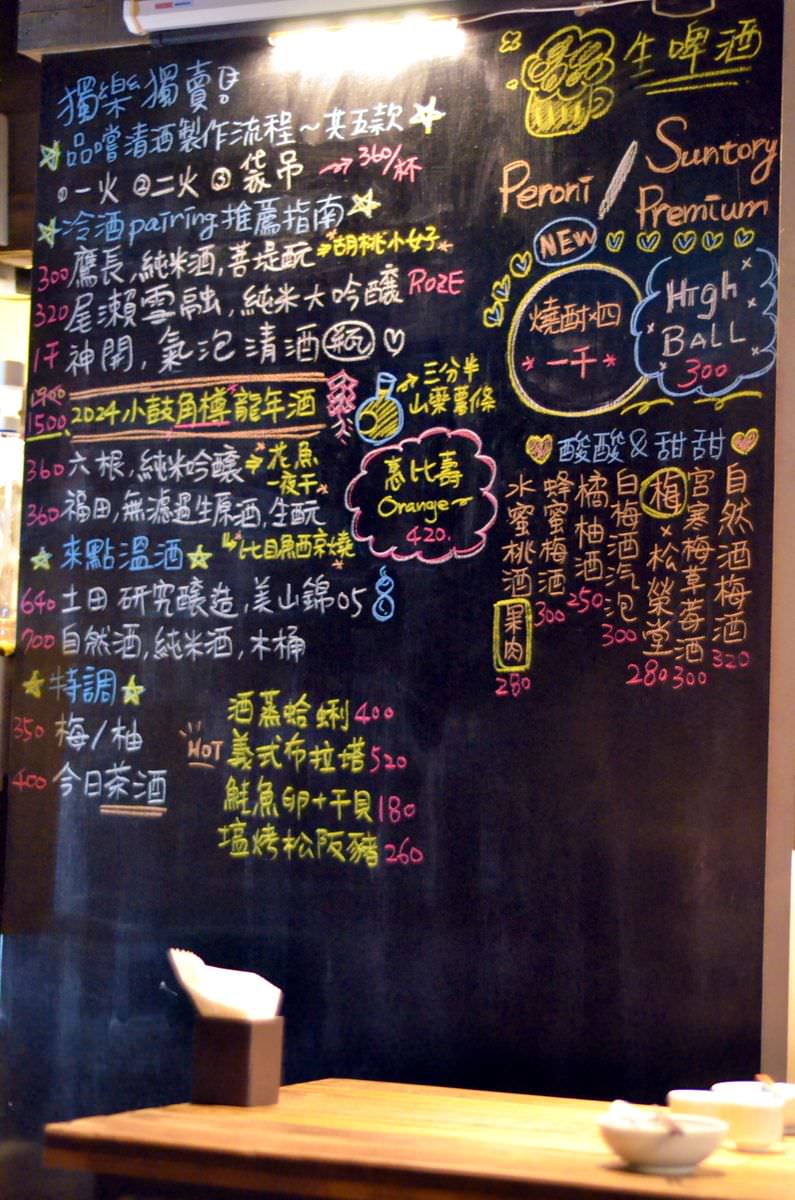 獨樂獨賣
品嚐清酒製作流程~共五款
①一火 ②二火 ③袋吊 → 360/杯
冷酒pairing推薦指南
300 鷹長,純米酒,菩提酛 → 胡桃小女子
320 尾瀨雪融,純米大吟釀 ROZE
1千 神開,氣泡清酒 瓶
1900
1500 2024小鼓角樽龍年酒
→ 三分半
山藥薯條
360 六根,純米吟釀 → 花魚
一夜干
360 福田,無濾過生原酒,生酛
→ 比目魚西京燒
惠比壽
Orange
420.
來點溫酒
640 土田 研究釀造,美山錦05
700 自然酒,純米酒,木桶
特調
350 梅/柚
400 今日茶酒
HOT
酒蒸蛤蜊400
義式布拉塔520
鮭魚卵+干貝180
塩烤松阪豬260
生啤酒
Peroni / Suntory
Premium
NEW
燒酎x四
一千
High
BALL
300
酸酸&甜甜
自然酒梅酒 320
宮寒梅草莓酒 300
梅x松榮堂 280
白梅酒汽泡 300
橘柚酒 250
蜂蜜梅酒 300
水蜜桃酒 果肉 280